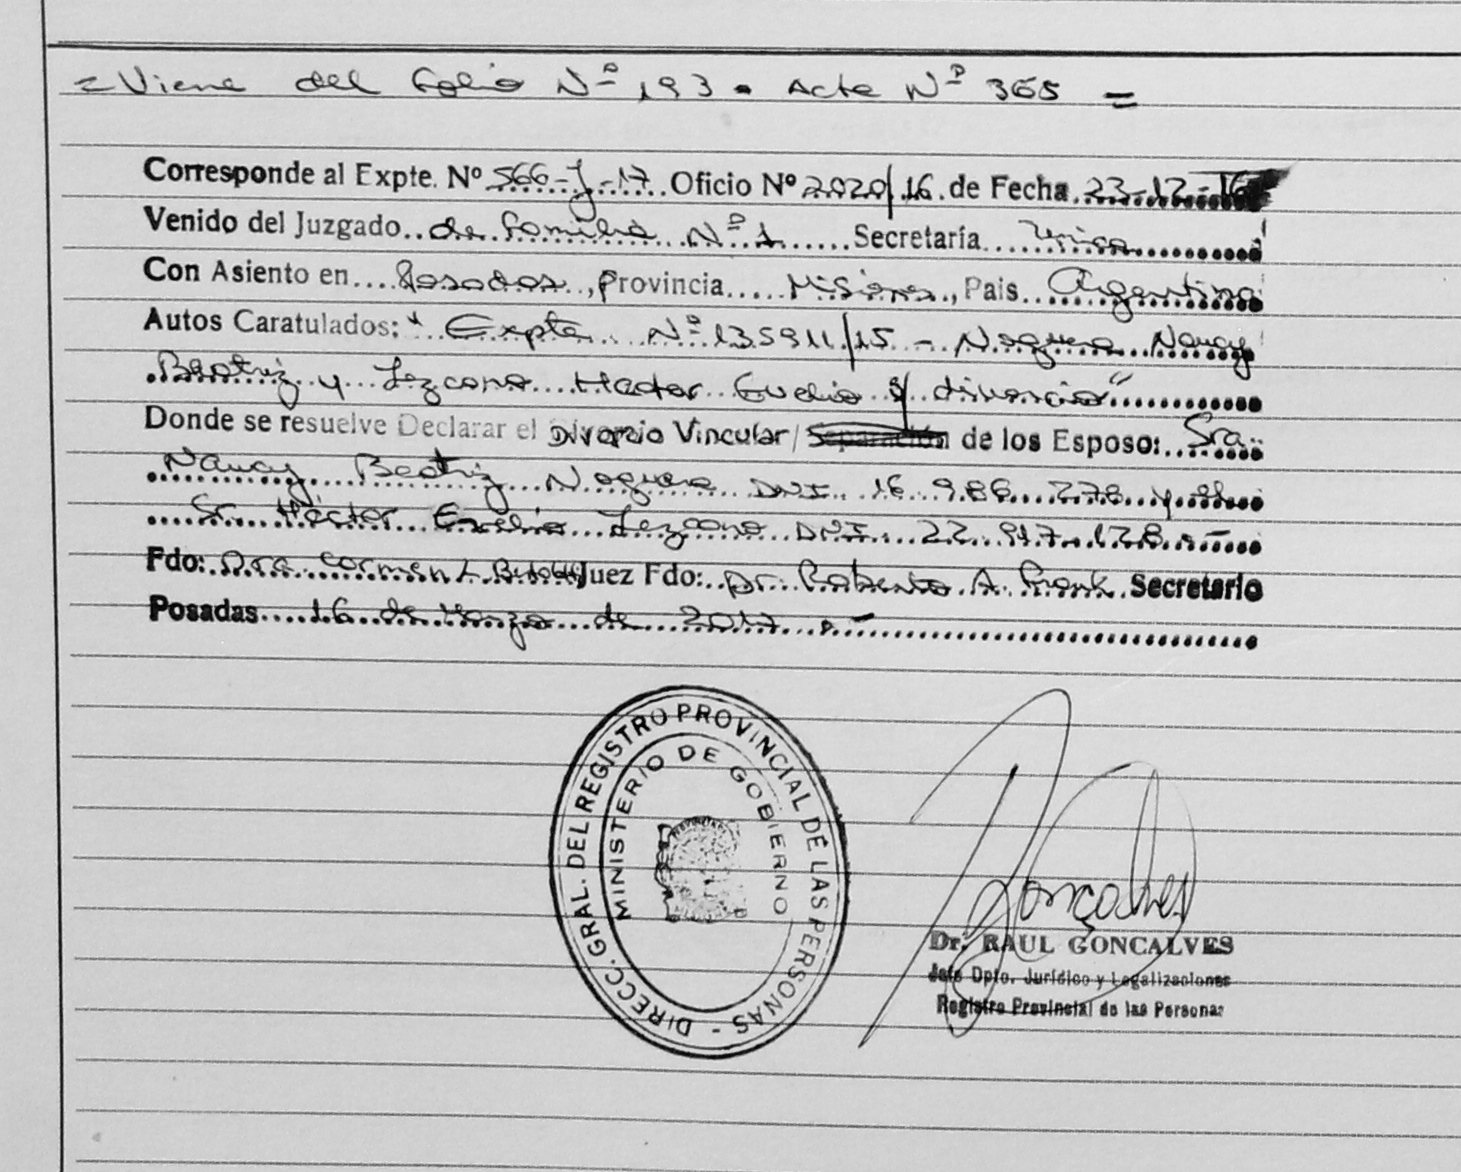 = Viene del Folio Nº 193 . Acta Nº 365 =
Corresponde al Expte. Nº 566-J-17 Oficio Nº 2020/16 de Fecha 23-12-16
Venido del Juzgado de Familia Nº 1 Secretaría Unica
Con Asiento en Posadas, Provincia Misiones, Pais Argentina
Autos Caratulados: " Expte Nº 135911/15 - Noguera Nancy
Beatriz y Lezcano Hector Evelio s/ divorcio"
Donde se resuelve Declarar el Divorcio Vincular/ Separación de los Esposo: Sra.
Nancy Beatriz Noguera DNI. 16.986.278 y el
Sr. Héctor Evelio Lezcano DNI. 22.917.128.-
Fdo: Dra. Carmen Juez Fdo: Dr. Roberto A. Frank Secretario
Posadas 16 de Marzo de 2017 .-
DIRECC. GRAL. DEL REGISTRO PROVINCIAL DE LAS PERSONAS -
MINISTERIO DE GOBIERNO
Goncalves
Dr. RAUL GONCALVES
Jefe Dpto. Jurídico y Legalizaciones
Registro Provincial de las Personas